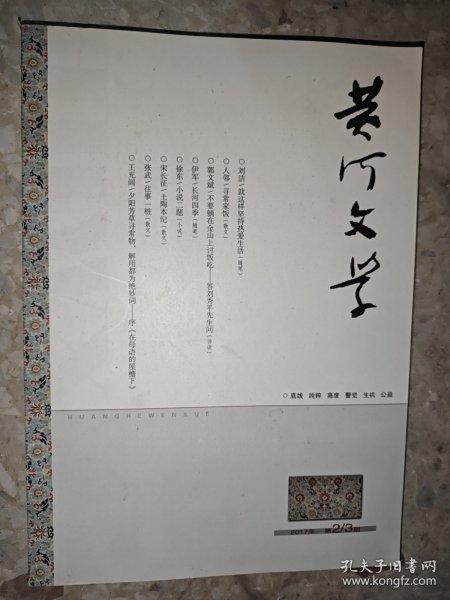 黄河文学
○ 刘洁/就这样坚持热爱生活(随笔)
○ 人邻/寻常家饭(散文)
○ 郭文斌/不要躺在金山上讨饭吃——答刘秀平先生问(访谈)
○ 伊军/长河四季(随笔)
○ 徐东/小说二题(小说)
○ 宋长征/土陶本纪(散文)
○ 张武/往事一桩(散文)
○ 王充闾/夕阳芳草寻常物,解用都为绝妙词——序《在母语的屋檐下》
○ 底线 纯粹 高度 警觉 生机 公益
HUANGHEWENXUE
2017年 第2/3期
孔夫子旧书网
www.kongfz.com